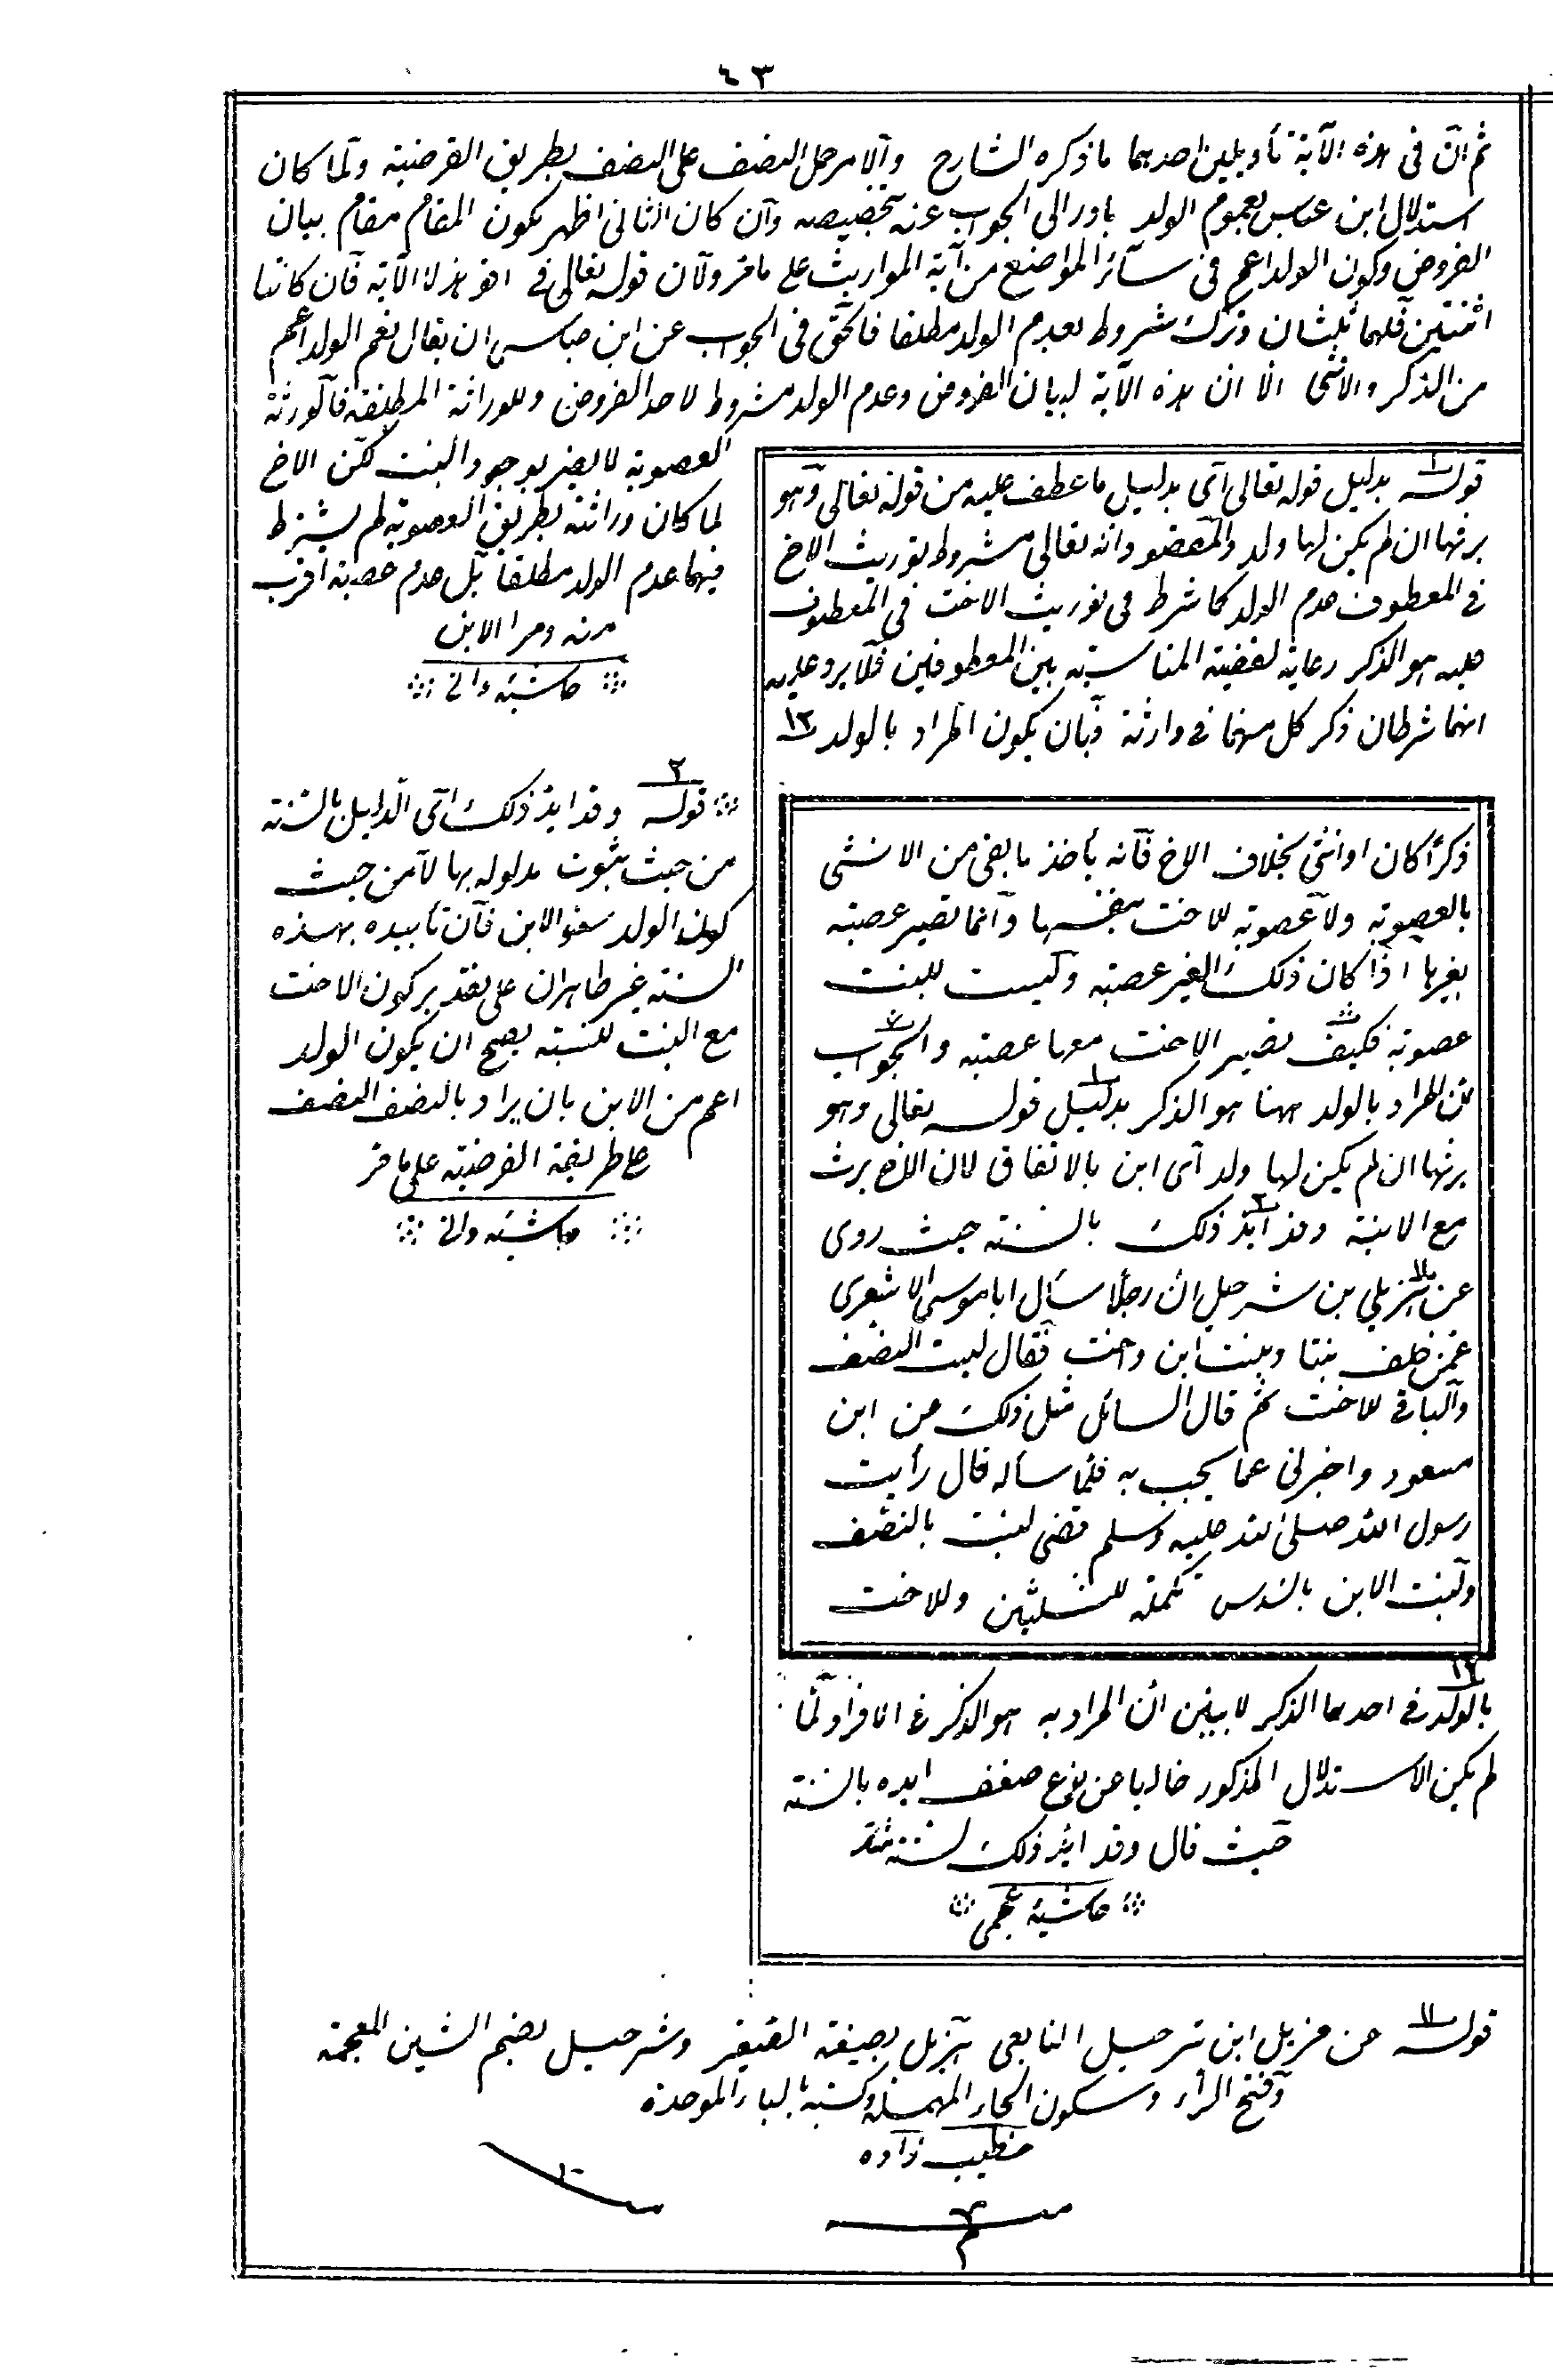 ٤٣
ثم ان في هذه الآية تأويلين احدهما ما ذكره الشارح والآمر حمل النصف على النصف بطريق الفرضية ولما كان
استدلال ابن عباس بعموم الولد بادر الى الجواب عنه بتخصيصه وان كان الثاني اظهر لكون المقام مقام بيان
الفروض وكون الولد اعم في سائر المواضع من آية المواريث على ما مر ولان قوله تعالى في هذه الآية فان كانتا
اثنتين فلهما الثلثان وترك مشروط بعدم الولد مطلقا فالحق في الجواب عن ابن عباس ان يقال نعم الولد اعم
من الذكر والانثى الا ان هذه الآية لبيان الفروض وعدم الولد مشروط لاحد الفروض وللوراثة المطلقة فالورثة
العصوبة لا يضر بوجود البنت لكن الاخ
لما كان وراثته بطريق العصوبة لم يشترط
فيها عدم الولد مطلقا بل عدم عصبة اقرب
منه وهو الابن
حاشيه واني
قوله بدليل قوله تعالى آى بدليل ما عطف عليه من قوله تعالى وهو
يرثها ان لم يكن لها ولد والمقصود انه تعالى مشروط بتوريث الاخ
في المعطوف عدم الولد كما شرط في توريث الاخت في المعطوف
عليه هو الذكر رعاية لقضية المناسبة بين المعطوفين فلا يرد عليه
انهما شرطان ذكر كل منهما في وارثة فبان يكون المراد بالولد ١٢
٢
قوله وقد ايد ذلك آى الدليل بالسنة
من حيث ثبوت مدلوله بها لا من حيث
كون الولد بمعنى الابن فان تأييده بهذه
السنة غير ظاهر ان على تقدير كون الاخت
مع البنت للسنة يصح ان يكون الولد
اعم من الابن بان يراد بالنصف النصف
على طريقة الفرضية على ما مر
حاشيه واني
ذكرًا كان او انثى بخلاف الاخ فانه يأخذ ما بقى من الانثى
بالعصوبة ولا عصوبة للاخت بنفسها وانما تصير عصبة
بغيرها اذا كان ذلك الغير عصبة وليست للبنت
عصوبة فكيف تصير الاخت معها عصبة والجواب
ان المراد بالولد ههنا هو الذكر بدليل قوله تعالى وهو
يرثها ان لم يكن لها ولد آى ابن بالاتفاق لان الاخ يرث
مع الابنة وقد ايد ذلك بالسنة حيث روى
عن هزيل بن شرحبيل ان رجلا سأل ابا موسى الاشعرى
عمن خلف بنتا وبنت ابن واخت فقال لبنت النصف
والباقى للاخت ثم قال السائل مثل ذلك عن ابن
مسعود واخبرنى عما يجيب به فلما سأله قال رأيت
رسول الله صلى الله عليه وسلم قضى لبنت بالنصف
ولبنت الابن بالسدس تكملة للثلثين وللاخت
١٢
بالولد فى احدهما الذكر لا يتعين ان المراد به هو الذكر فى الآخر ولما
لم يكن الاستدلال المذكور خاليا عن نوع ضعف ايده بالسنة
حيث قال وقد ايد ذلك لسنة
حاشيه عجمى
١١
قوله عن هزيل ابن شرحبيل التابعى هزيل بصيغة التصغير وشرحبيل بضم الشين المعجمة
وفتح الراء وسكون الحاء المهملة وكسر الباء الموحدة
خطيب زاده